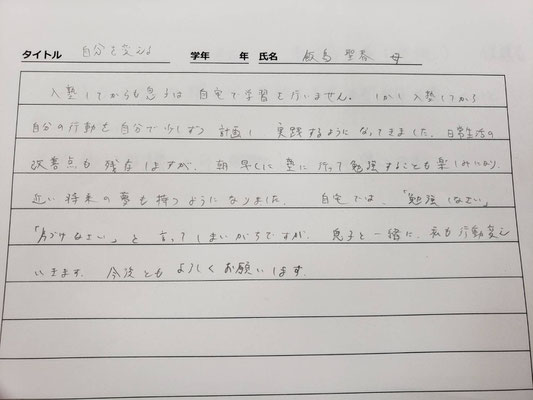 タイトル 自分を変える 学年 年 氏名 飯島 聖春 母
入塾してからも息子は自宅で学習を行いません。しかし入塾してから
自分の行動を自分で少しずつ計画し実践するようになってきました。日常生活の
改善点も残なしますが、朝早くに塾に行って勉強することも楽しみになり、
近い将来の夢も持つようになりました。自宅では、「勉強しなさい」
「片づけなさい」と言ってしまいがちですが、息子と一緒に、私も行動変え
いきます。今後ともよろしくお願いします。